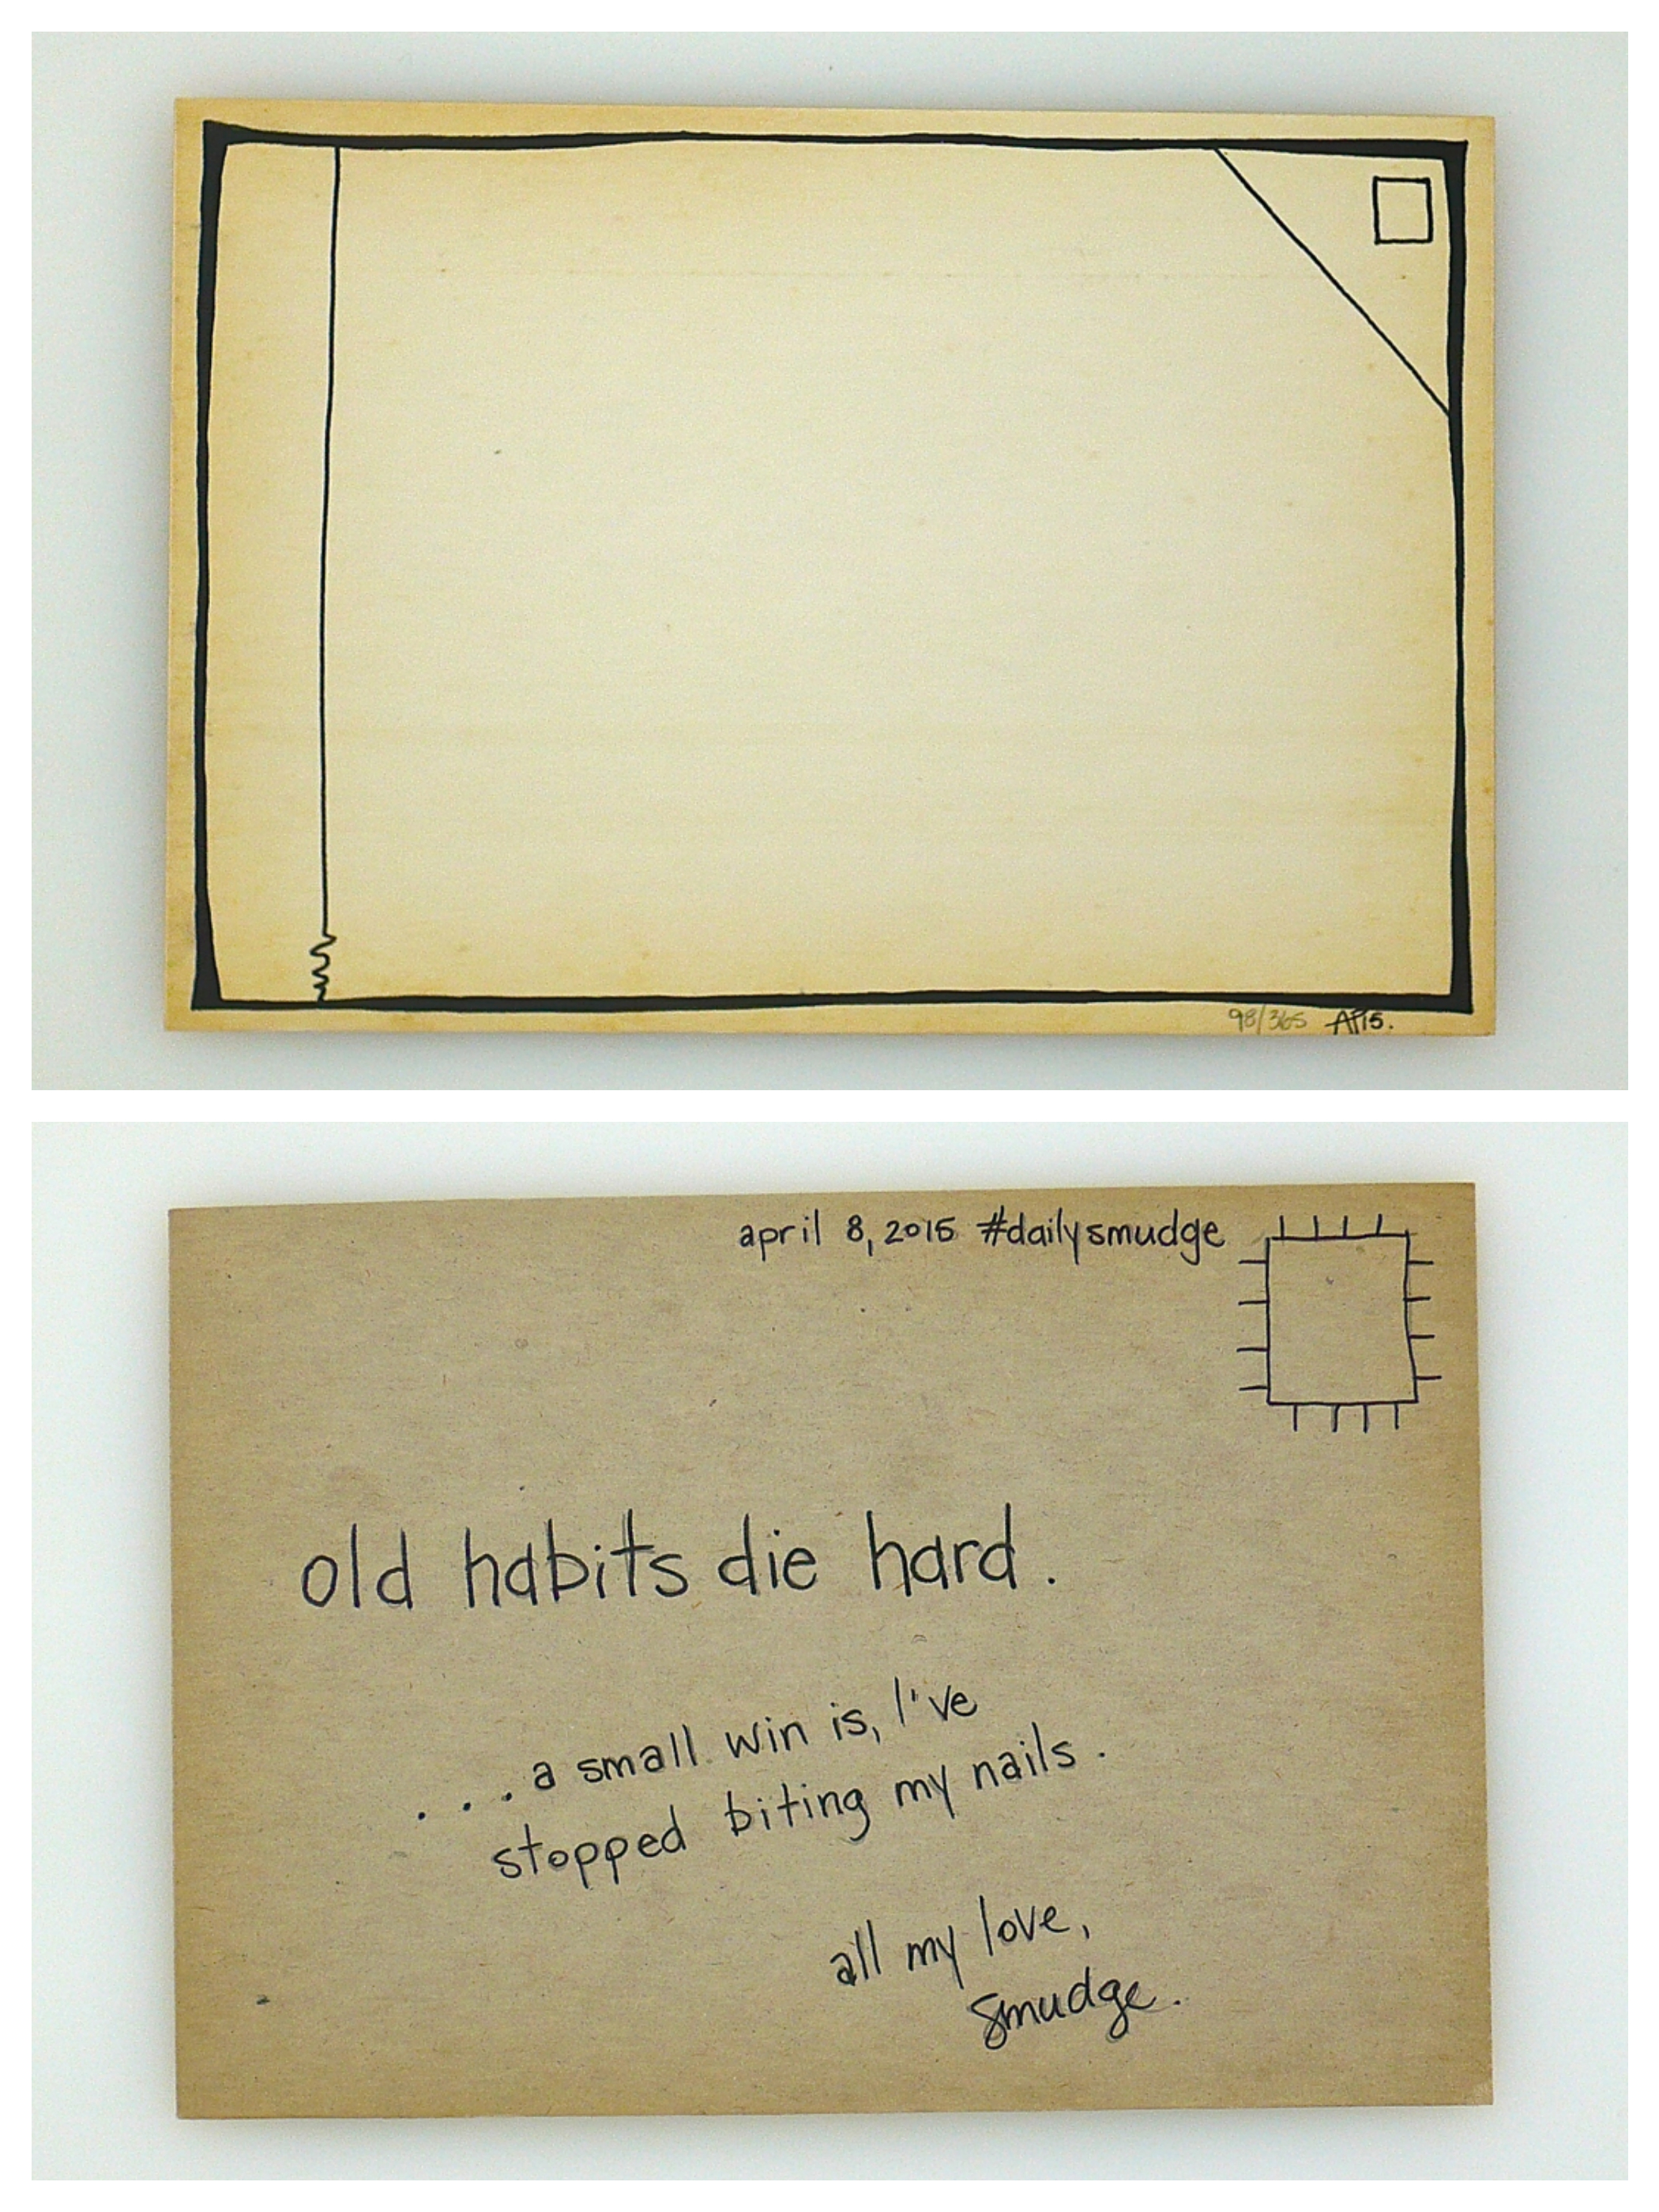 98/365 AP15.
april 8, 2015 #dailysmudge
old habits die hard.
. . . a small win is, I've
stopped biting my nails.
all my love,
smudge.